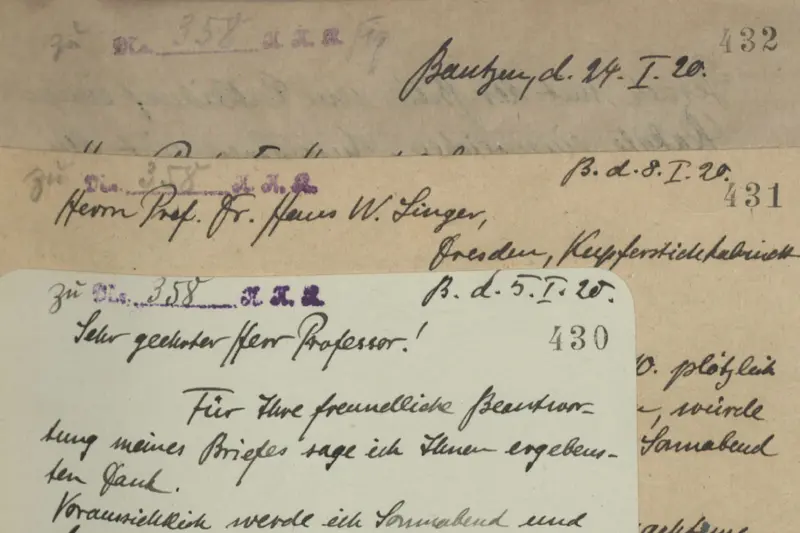 zu No. 358 K. K. K. /19
432
Bautzen, d. 24. I. 20.
zu No. 358 K. K. K.
B. d. 8. I. 20.
431
Herrn Prof. Dr. Hans W. Singer,
Dresden, Kupferstichkabinett
zu No. 358 K. K. K.
B. d. 5. I. 20.
Sehr geehrter Herr Professor!
430
Für Ihre freundliche Beantwor-
tung meines Briefes sage ich Ihnen ergebens-
ten Dank.
Voraussichtlich werde ich Sonnabend und
0. plötzlich
würde
Sonnabend